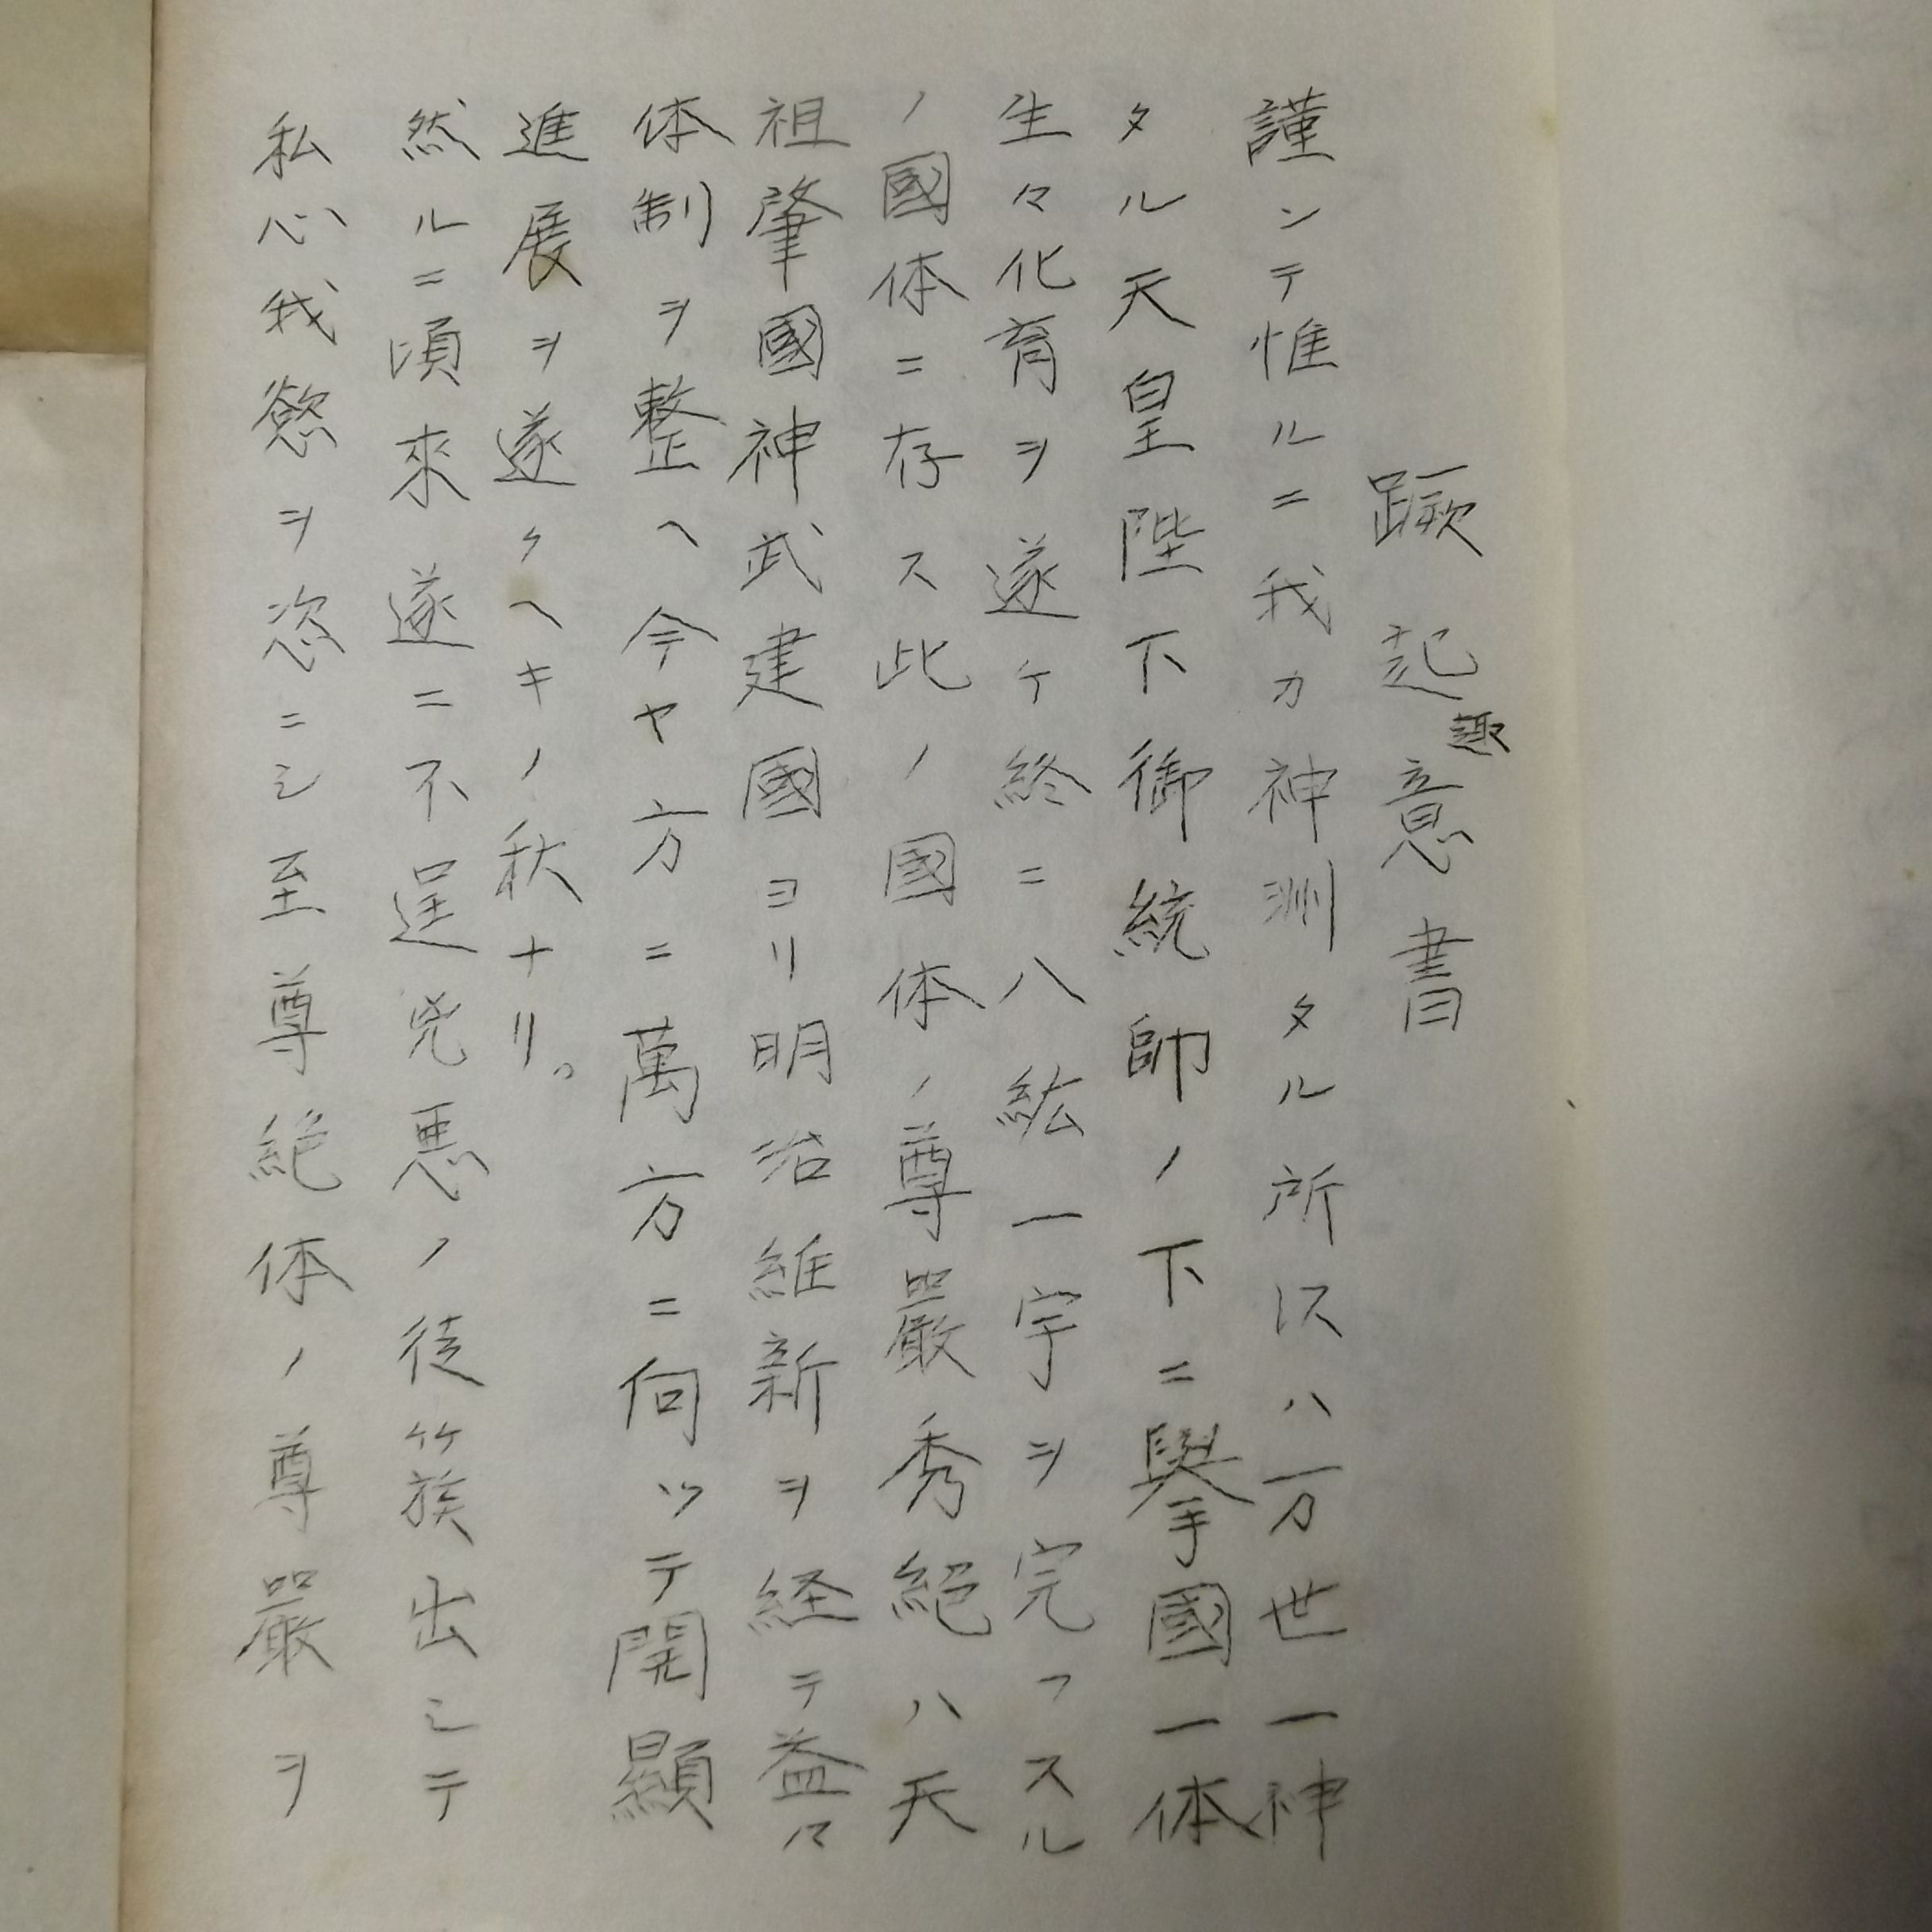 蹶起趣意書
謹ンテ惟ルニ我カ神洲タル所以ハ万世一神
タル天皇陛下御統帥ノ下ニ擧國一体
生々化育ヲ遂ケ終ニ八紘一宇ヲ完フスル
ノ國体ニ存ス此ノ國体ノ尊嚴秀絕ハ天
祖肇國神武建國ヨリ明治維新ヲ経テ益々
体制ヲ整ヘ今ヤ方ニ萬方ニ向ツテ開顯
進展ヲ遂クヘキノ秋ナリ。
然ルニ頃來遂ニ不逞兇悪ノ徒簇出シテ
私心我慾ヲ恣ニシ至尊絕体ノ尊嚴ヲ